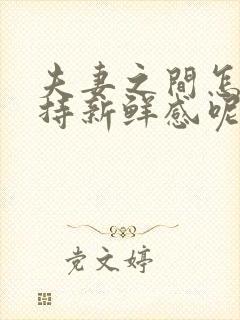 夫妻之間怎
持新鮮感呢
党文婷